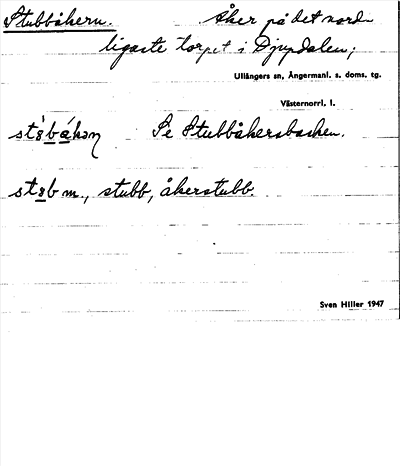 Stubbåkern. Åker på det nord-
ligaste torpet i Djupdalen;
Ullångers sn, Ångermanl. s. doms. tg.
Västernorrl. l.
Se Stubbåkersbacken.
m., stubb, åkerstubb.
Sven Hiller 1947